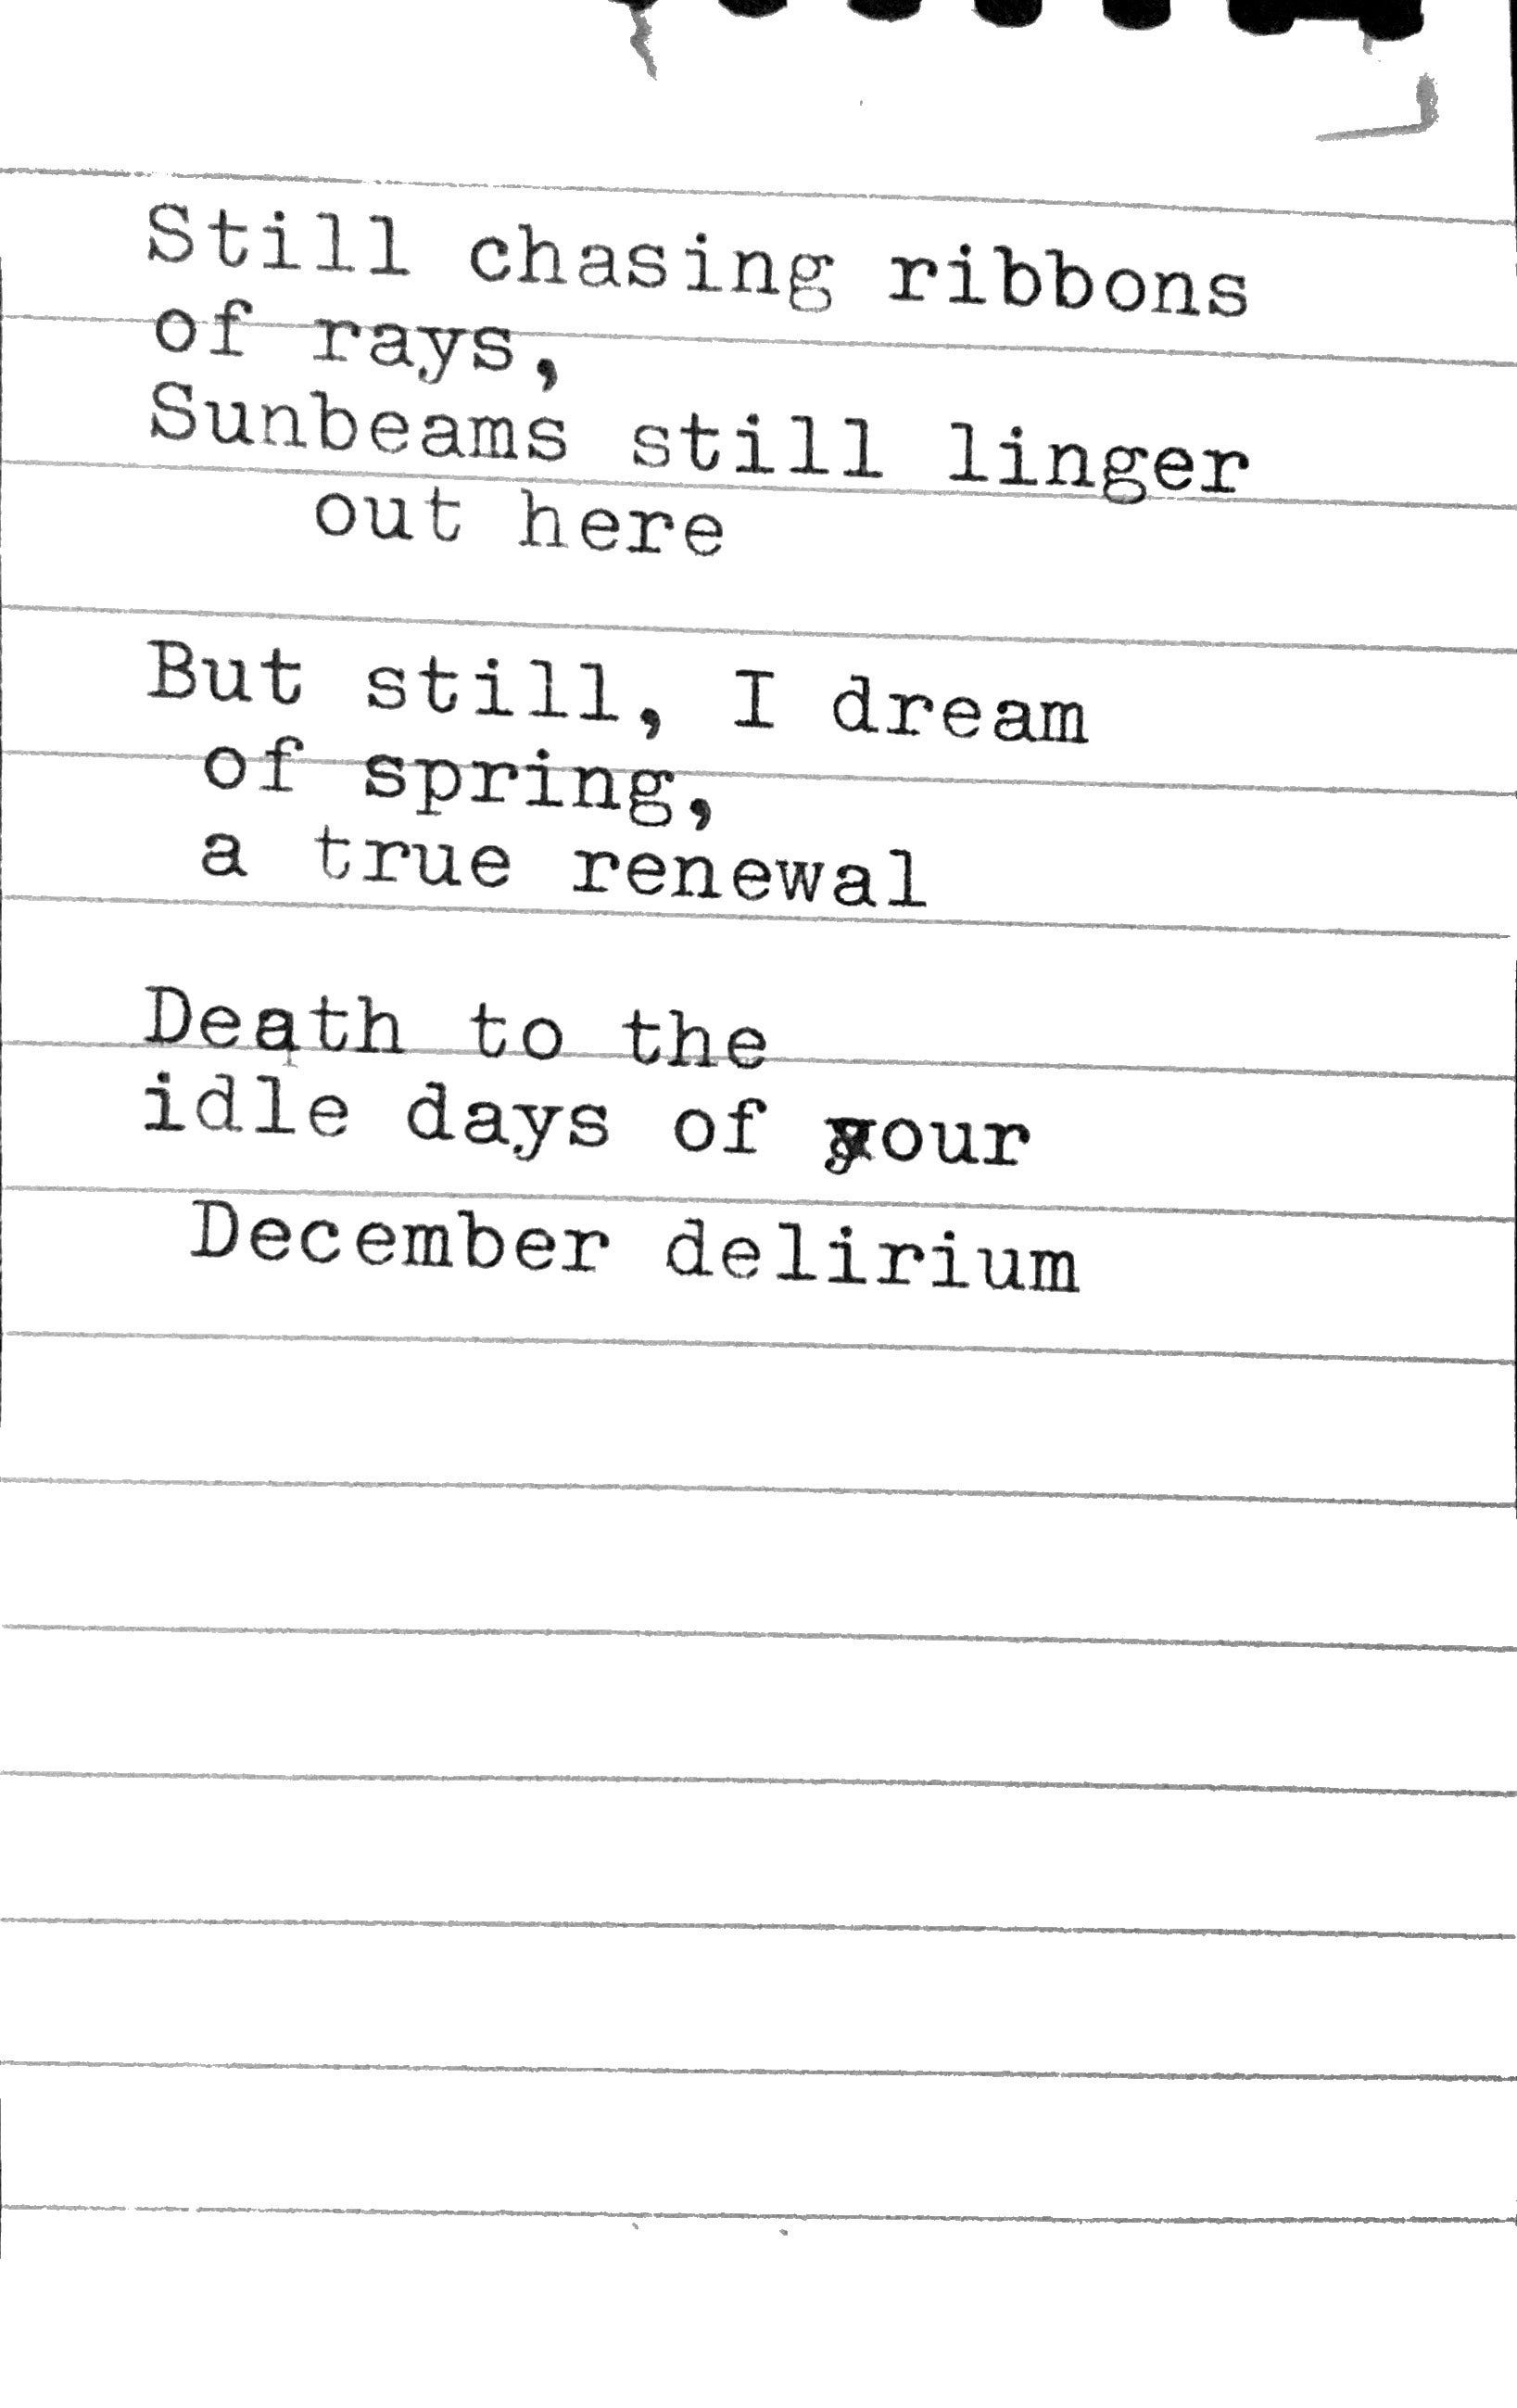 Still chasing ribbons
of rays,
Sunbeams still linger
out here
But still, I dream
of spring,
a true renewal
Death to the
idle days of your
December delirium